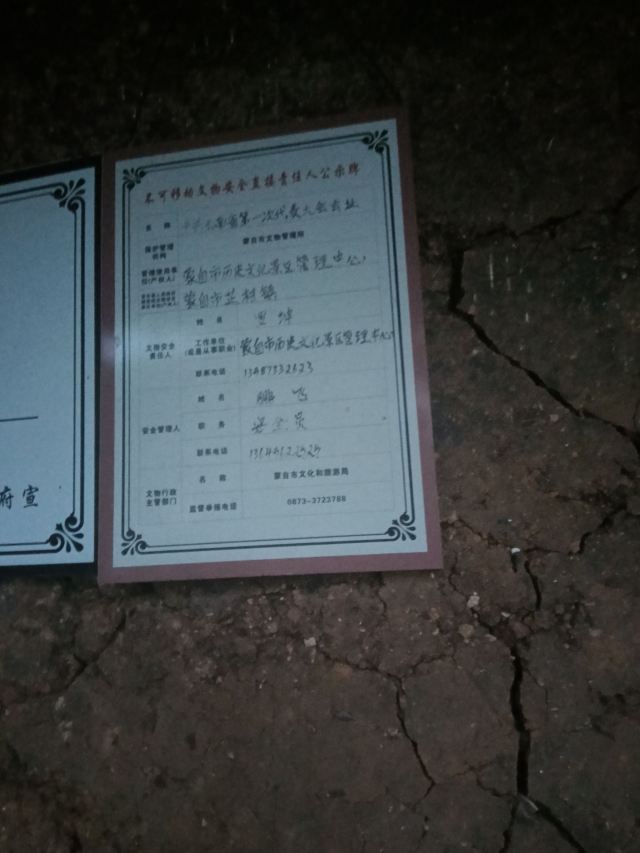 不可移动文物安全直接责任人公示牌
名 称 中共云南省第一次代表大会会址
保护管理机构 蒙自市文物管理所
管理使用单位(产权人) 蒙自市历史文化景区管理中心
蒙自市芷村镇
姓 名
文物安全责任人 工作单位(或是从事职业) 蒙自市历史文化景区管理中心
联系电话
姓 名 鹏
安全管理人 职 务 安全员
联系电话
名 称 蒙自市文化和旅游局
文物行政主管部门 监督举报电话 0873-3723788
府 宣